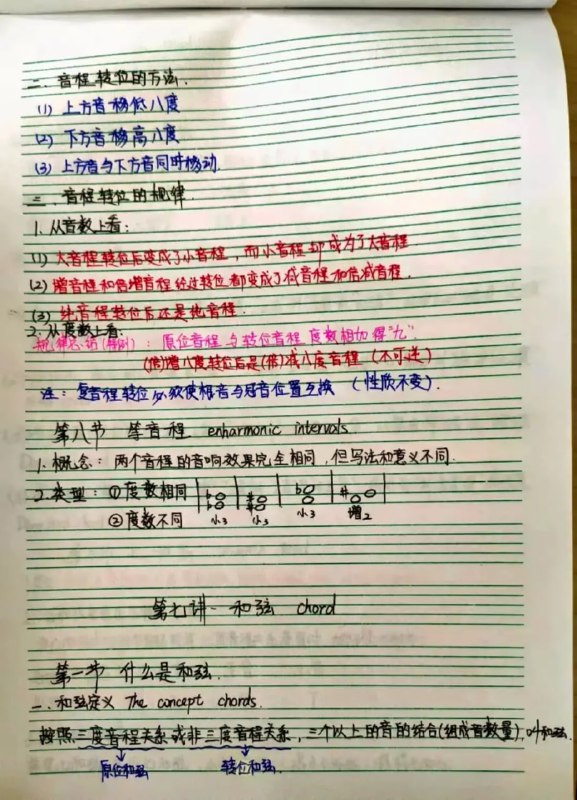 二、音程转位的方法.
(1) 上方音移低八度
(2) 下方音移高八度
(3) 上方音与下方音同时移动.
三、音程转位的规律.
1. 从音数上看:
(1) 大音程转位后变成了小音程，而小音程却成为了大音程
(2) 增音程和倍增音程经过转位都变成了减音程和倍减音程.
(3) 纯音程转位后还是纯音程.
2. 从度数上看:
规律总结(特例): 原位音程与转位音程度数相加得"九".
(倍)增八度转位后是(倍)减八度音程 (不可逆)
注: 复音程转位必须使根音与冠音位置互换 (性质不变).
第八节 等音程 enharmonic intervals
1. 概念: 两个音程的音响效果完全相同，但写法和意义不同.
2. 类型: ① 度数相同
② 度数不同 小3 小3 小3 增2
第七讲 和弦 chord
第一节 什么是和弦.
一、和弦定义 The concept chords.
按照三度音程关系或非三度音程关系，三个以上的音的结合(组成音数量)，叫和弦.
原位和弦 转位和弦.